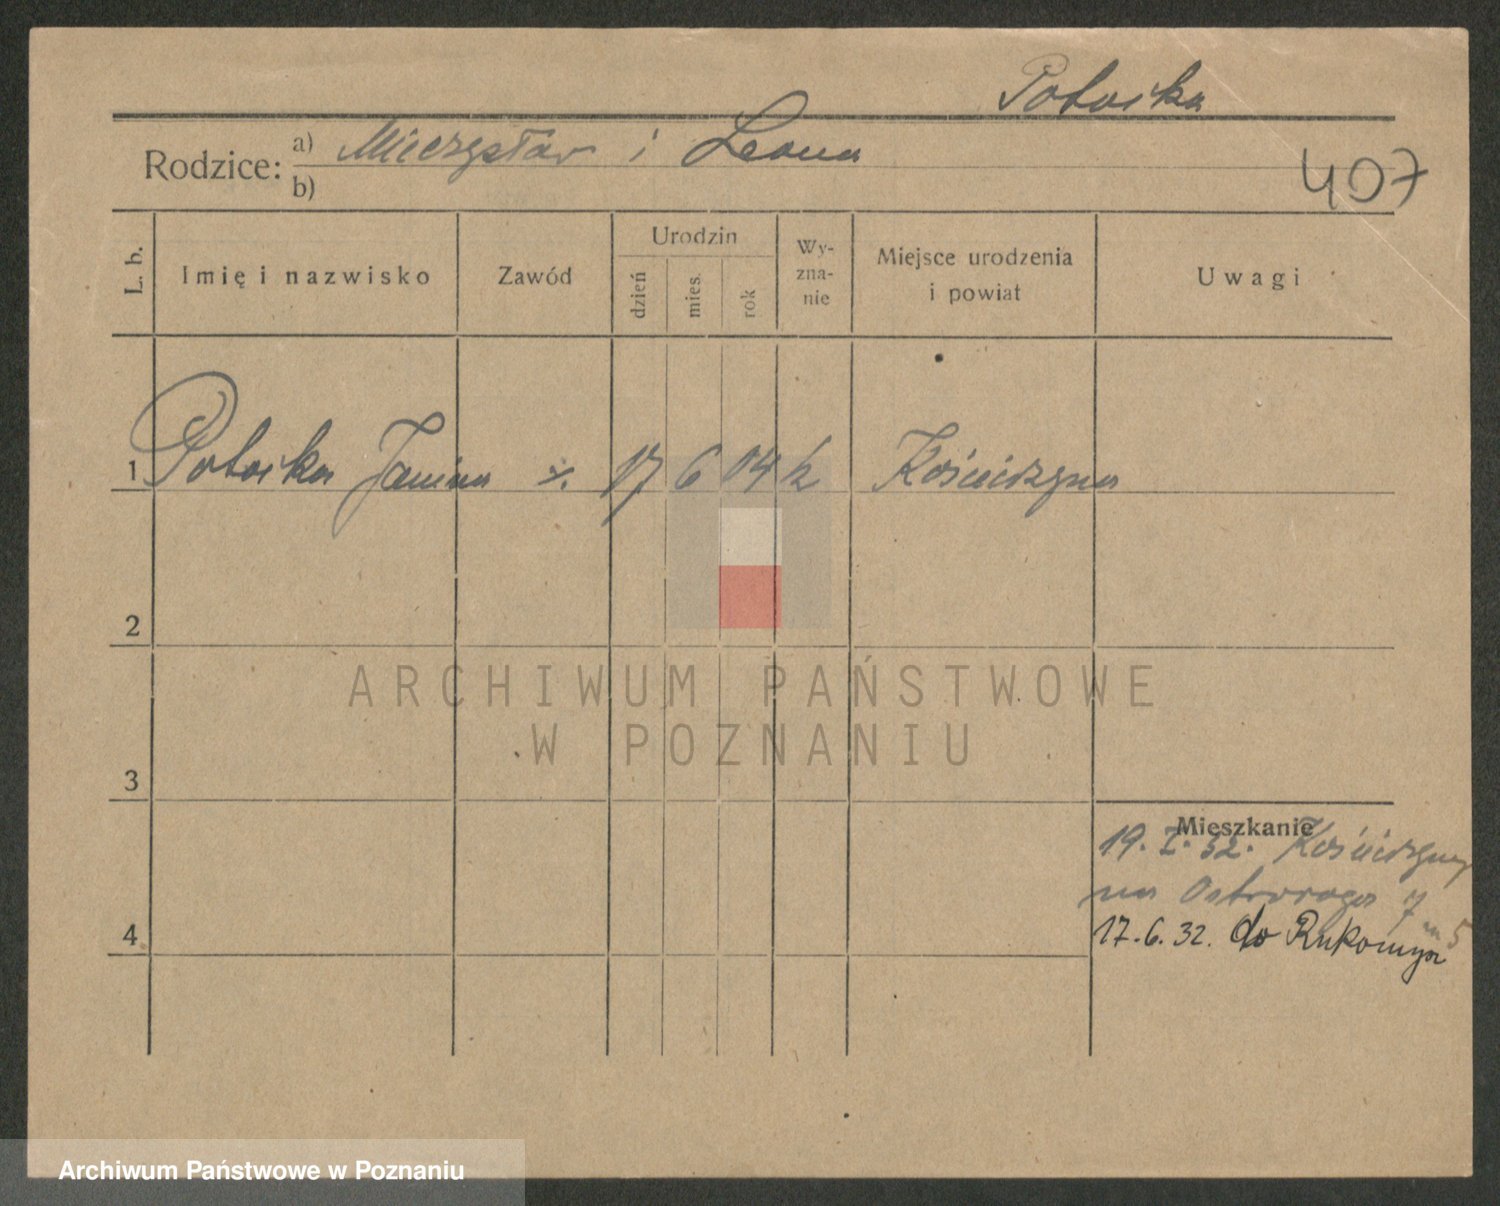 Potocka
Rodzice: a) Mieczysław i Leona
b)
407
L. b.
Imię i nazwisko
Zawód
Urodzin
dzień
mies.
rok
Wy-
zna-
nie
Miejsce urodzenia
i powiat
Uwagi
1 Potocka Janina 17 6 04 k Kościerzyna
2
3
4
Mieszkanie
19. I. 32. Kościerzyny
na Ostroroga 7 m 5
17.6.32. do
ARCHIWUM PAŃSTWOWE
W POZNANIU
Archiwum Państwowe w Poznaniu